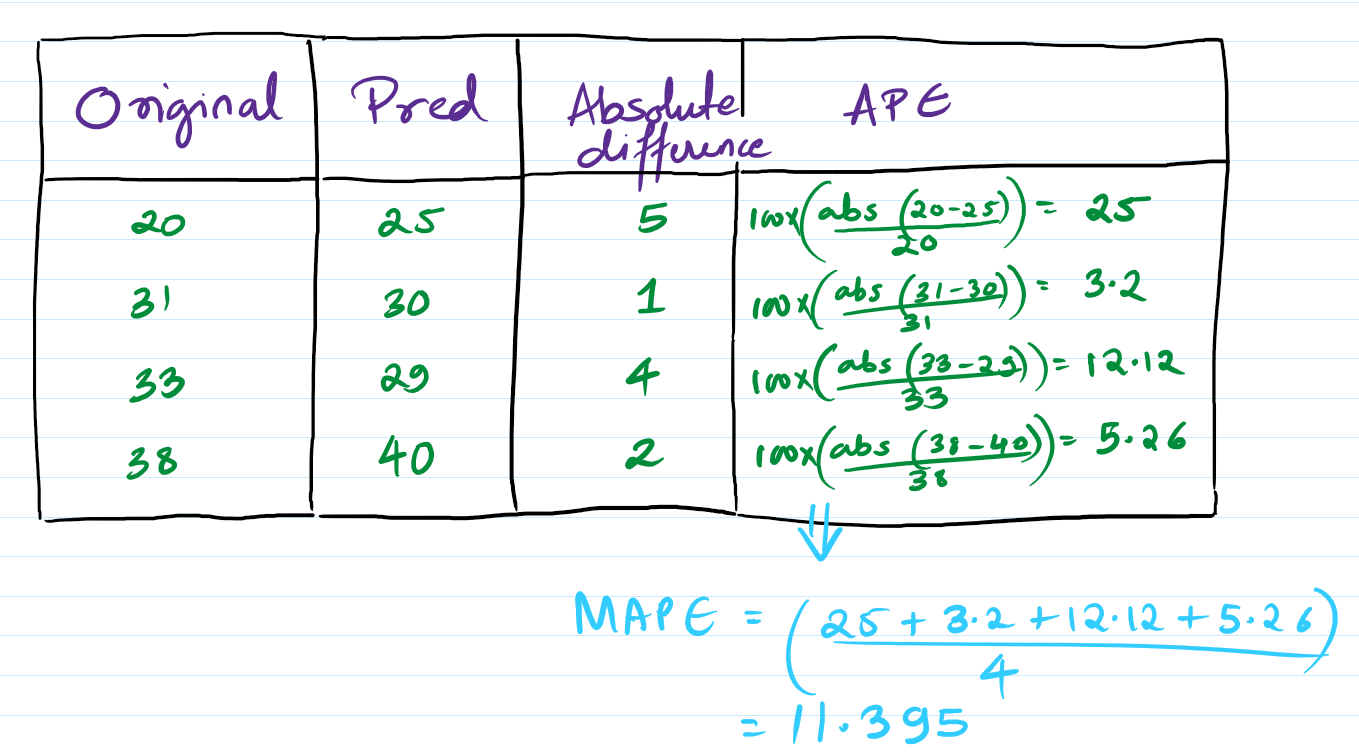 Original Pred Absolute difference APE
20 25 5 100x(abs (20-25)/20) = 25
31 30 1 100x(abs (31-30)/31) = 3.2
33 29 4 100x(abs (33-29)/33) = 12.12
38 40 2 100x(abs (38-40)/38) = 5.26
MAPE = (25 + 3.2 + 12.12 + 5.26)/4
= 11.395